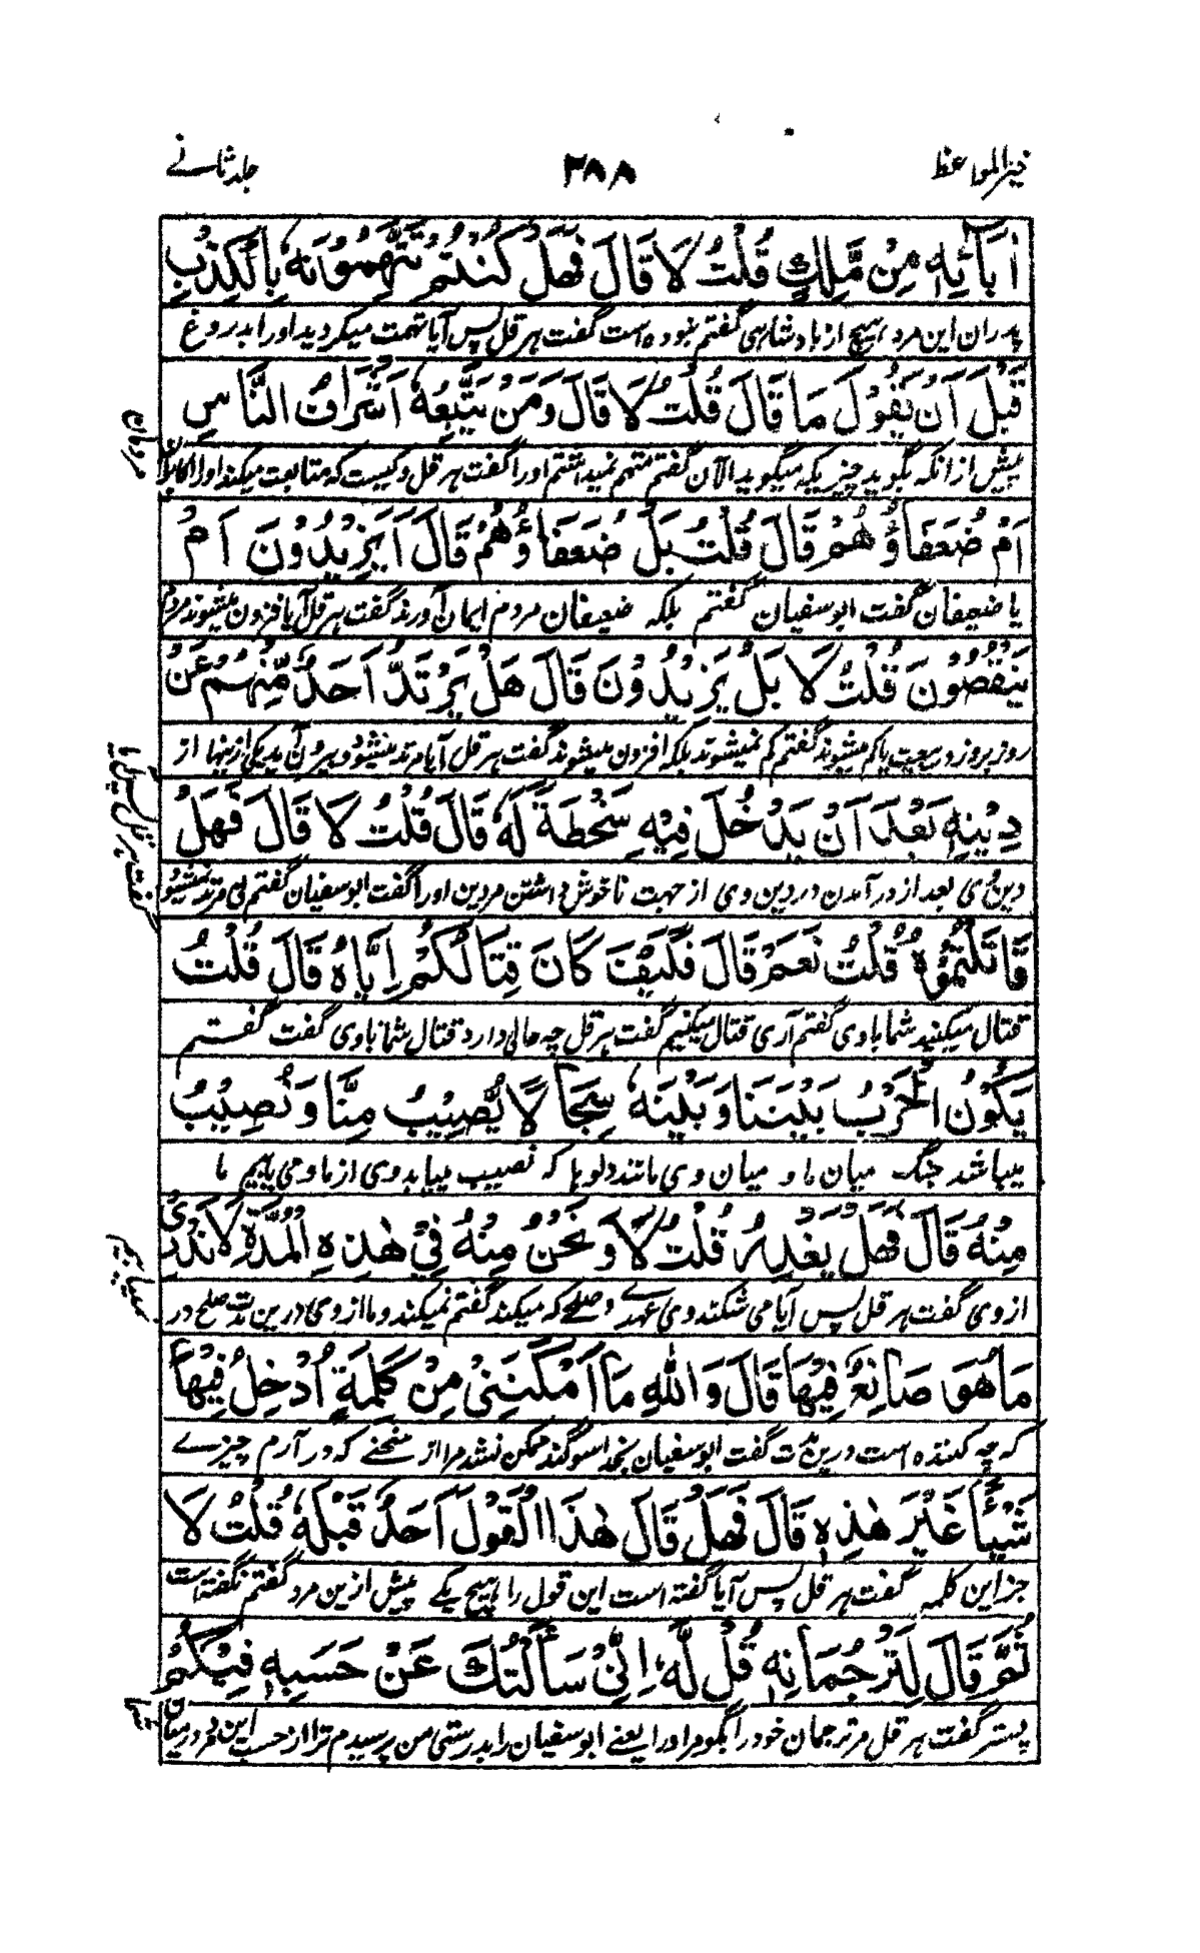 خیرالمواعظ
۳۸۸
جلد ثانے
اٰبَآئِهٖ مِنْ مَّلِكٍ قُلْتُ لَا قَالَ فَهَلْ كُنْتُمْ تَتَّهِمُوْنَهٗ بِالْكِذْبِ
پدران این مرد هیچ از بادشاهی گفتم نبوده است گفت هرقل پس آیا تهمت میکردید اورا بدروغ
قَبْلَ اَنْ يَّقُوْلَ مَا قَالَ قُلْتُ لَا قَالَ وَمَنْ يَتَّبِعُهٗ اَشْرَافُ النَّاسِ
پیش ازانکه بگوید چیزیکه میگوید الآن گفتم متهم نمیداشتم اورا گفت هرقل و کیست که متابعت میکند اورا اکابر
مردمان
اَمْ ضُعَفَاؤُهُمْ قَالَ قُلْتُ بَلْ ضُعَفَاؤُهُمْ قَالَ اَيَزِيْدُوْنَ اَمْ
یا ضعیفان گفت ابوسفیان گفتم بلکه ضعیفان مردم ایمان آورند گفت هرقل آیا افزون میشوند مردم
يَنْقُصُوْنَ قُلْتُ لَا بَلْ يَزِيْدُوْنَ قَالَ هَلْ يَرْتَدُّ اَحَدٌ مِّنْهُمْ عَنْ
روز بروز و یا کم میشوند گفتم کم نمیشوند بلکه افزون میشوند گفت هرقل آیا مرتد میشود و بیرون آید یکی ازینها از
دِيْنِهٖ بَعْدَ اَنْ يَدْخُلَ فِيْهِ سَخْطَةً لَهٗ قَالَ قُلْتُ لَا قَالَ فَهَلْ
دین وی بعد از درآمدن در دین وی از جهت ناخوش داشتن مر دین اورا گفت ابوسفیان گفتم نی مرتد نمیشود
گفت هرقل پس آیا
قَاتَلْتُمُوْهُ قُلْتُ نَعَمْ قَالَ فَكَيْفَ كَانَ قِتَالُكُمْ اِيَّاهُ قَالَ قُلْتُ
قتال میکنید شما با وی گفتم آری قتال میکنیم گفت هرقل چه حالی دارد قتال شما با وی گفت گفتم
يَكُوْنُ الْحَرْبُ بَيْنَنَا وَبَيْنَهٗ سِجَالًا يُّصِيْبُ مِنَّا وَنُصِيْبُ
میباشد جنگ میان ما و میان وی مانند دلوها که نصیب مییابد وی از ما و می یابیم ما
مِنْهُ قَالَ فَهَلْ يَغْدِرُ قُلْتُ لَا وَنَحْنُ مِنْهُ فِيْ هٰذِهِ الْمُدَّةِ لَانَدْرِيْ
از وی گفت هرقل پس آیا می شکند وی عهدے و صلحے که میکند گفتم نمیکند و ما از وی درین مدت صلح در
نمییابیم
مَاهُوَ صَانِعٌ فِيْهَا قَالَ وَاللّٰهِ مَا اَمْكَنَنِيْ مِنْ كَلِمَةٍ اُدْخِلُ فِيْهَا
که چه کننده است درین مدت گفت ابوسفیان بخدا سوگند ممکن نشد مرا از سخنے که درآرم چیزے
شَيْئًا غَيْرَ هٰذِهٖ قَالَ فَهَلْ قَالَ هٰذَا الْقَوْلَ اَحَدٌ قَبْلَهٗ قُلْتُ لَا
جز این کلمه گفت هرقل پس آیا گفته است این قول را هیچ یکے پیش ازین مرد گفتم نگفته است
ثُمَّ قَالَ لِتَرْجُمَانِهٖ قُلْ لَّهٗ اِنِّيْ سَاَلْتُكَ عَنْ حَسَبِهٖ فِيْكُمْ
پستر گفت هرقل مر ترجمان خود را بگو مر اورا یعنے ابوسفیان را بدرستی من پرسیدم ترا از حسب این مرد درمیان
شما